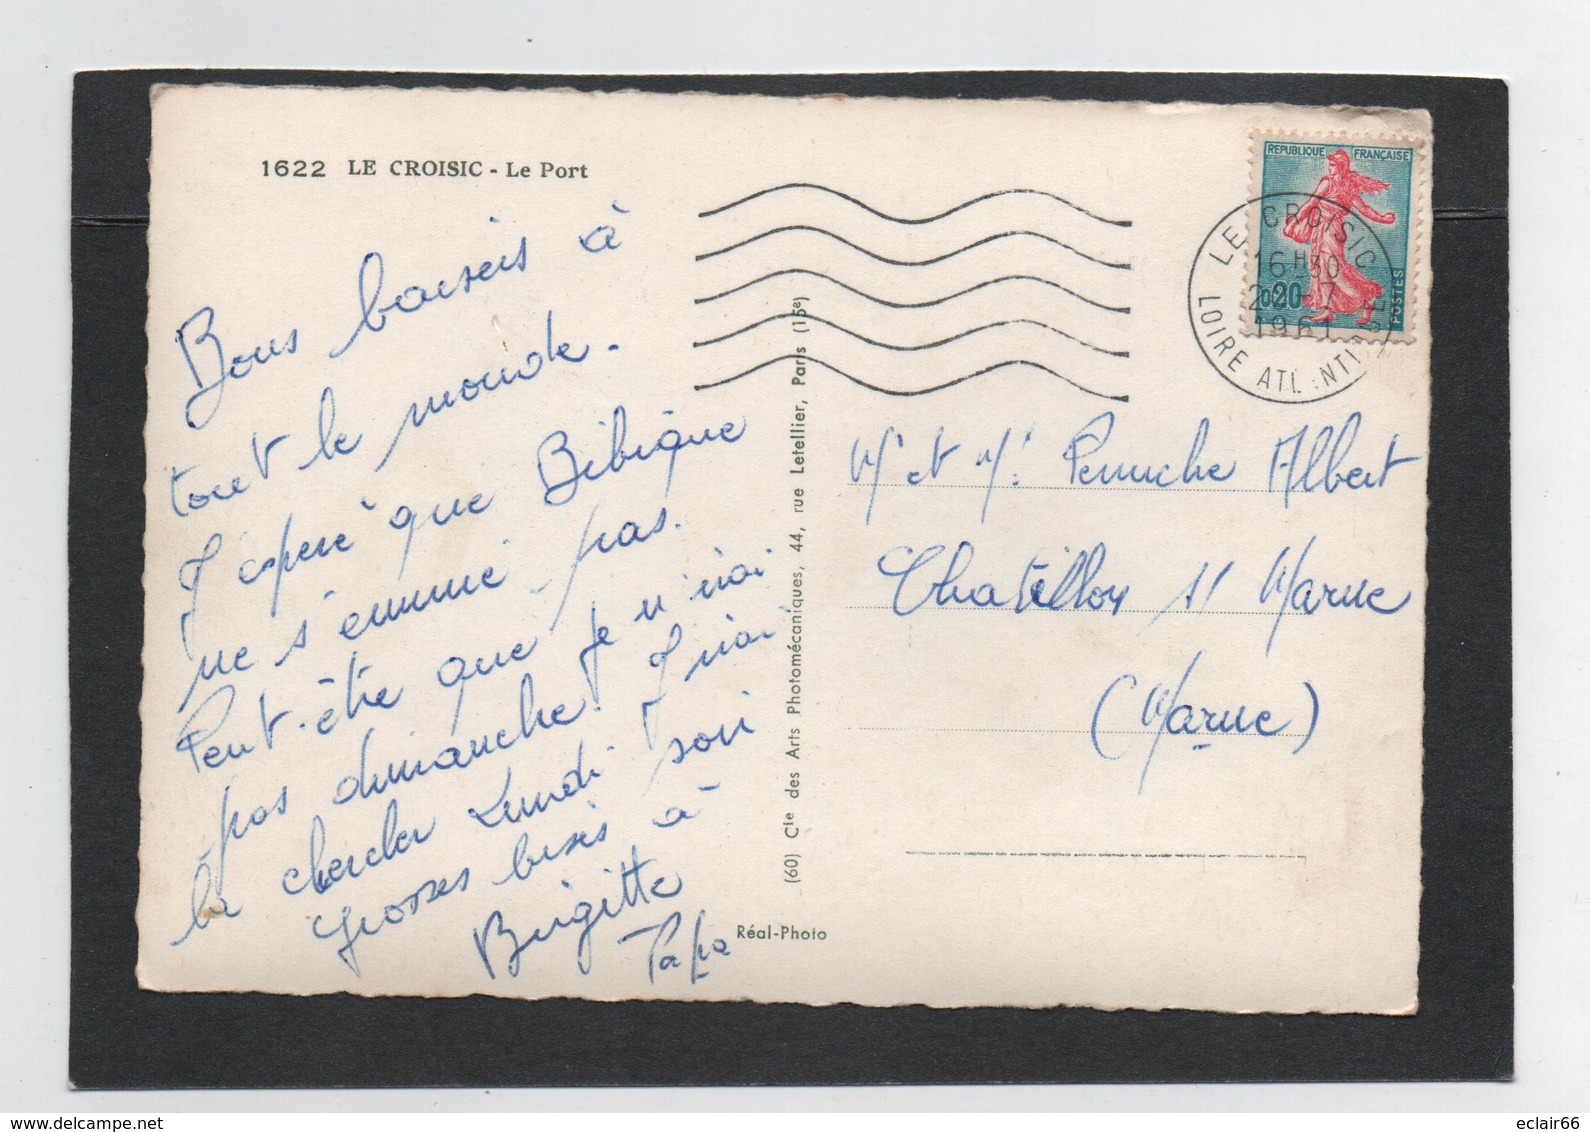 1622 LE CROISIC - Le Port
Bons baisers à
tout le monde.
J'espère que Bibique
ne s'ennuie pas.
Peut-être que je n'irai
pas dimanche. J'irai
la chercher Lundi soir
grosses bises à
Brigitte
Papa
Réal-Photo
(60) Cie des Arts Photomécaniques, 44, rue Letellier, Paris (15e)
REPUBLIQUE FRANÇAISE
0,20
POSTES
LE CROISIC
16H30
1961
LOIRE ATL.NTI
Mr et Mr Perruche Albert
Chatillon s/ Marne
(Marne)
eclair66